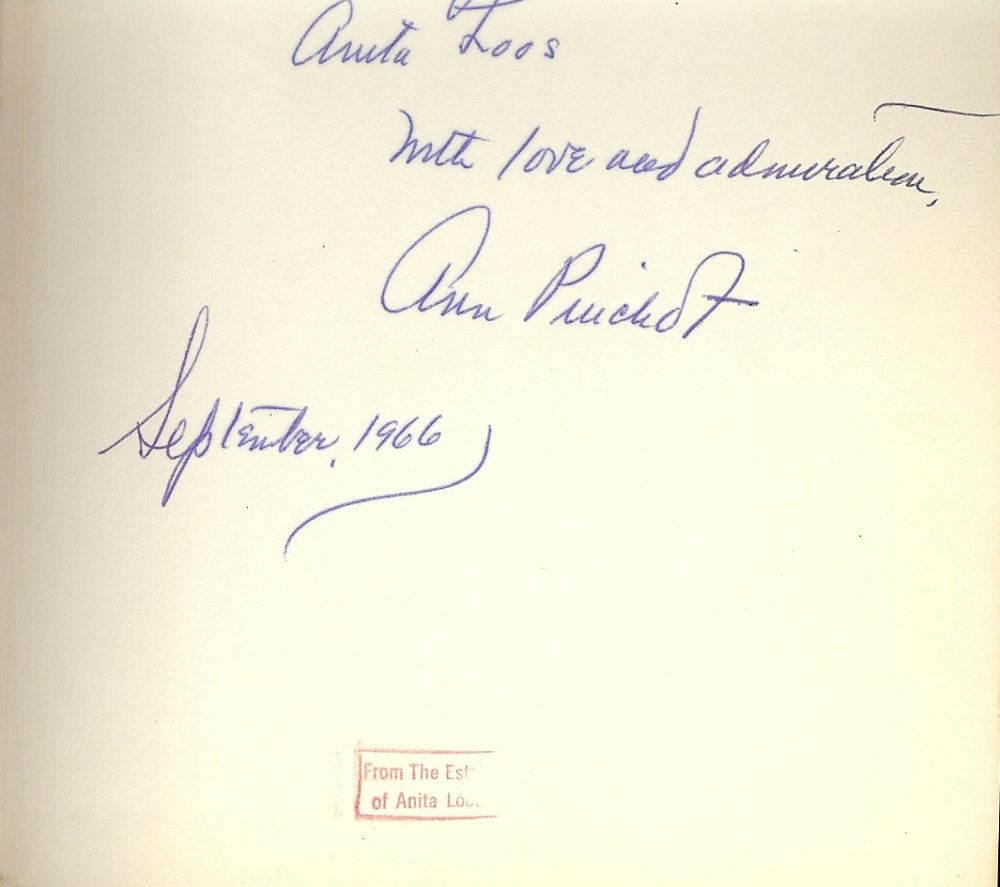 Anita Loos
With love and admiration,
Ann Pinchot
September, 1966
From The Est
of Anita Loo